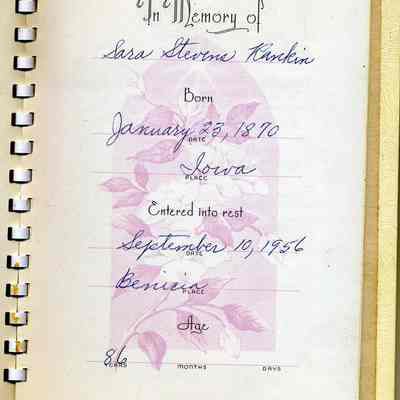 In Memory of
Sara Stevens Rankin
Born
January 23, 1870
DATE
Iowa
PLACE
Entered into rest
September 10, 1956
DATE
Benicia
PLACE
Age
86
YEARS MONTHS DAYS